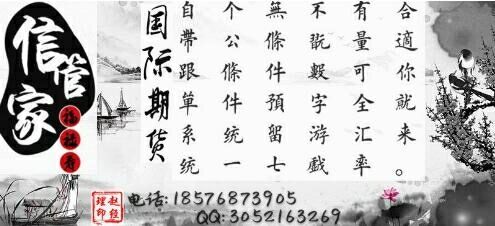 信管家
福禄寿
国际期货
自帶跟單系统
个公條件统一
無條件預留七
不翫數字游戲
有量可全汇率
合適你就来。
赵经
理印
电话:18576873905
QQ:3052163269